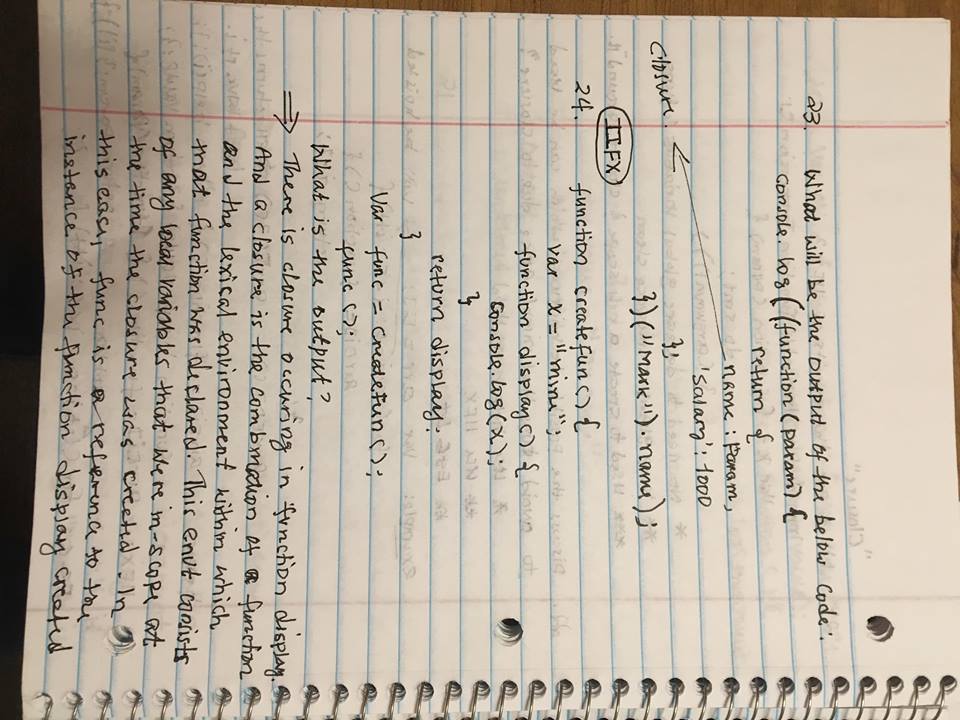 23. What will be the output of the below code:
console.log((function(param){
return {
name: param,
'salary': 1000
};
})("Mark").name);
closure.
IIFX
24. function createfun() {
var x = "mini";
function display() {
console.log(x);
}
return display;
}
Var func = createfun();
func();
What is the output?
⇒ There is closure occuring in function display.
And a closure is the combination of a function
and the lexical environment within which
that function was declared. This envt consists
of any local variables that were in-scope at
the time the closure was created. In
this easy, func is a reference to the
instance of the function display created